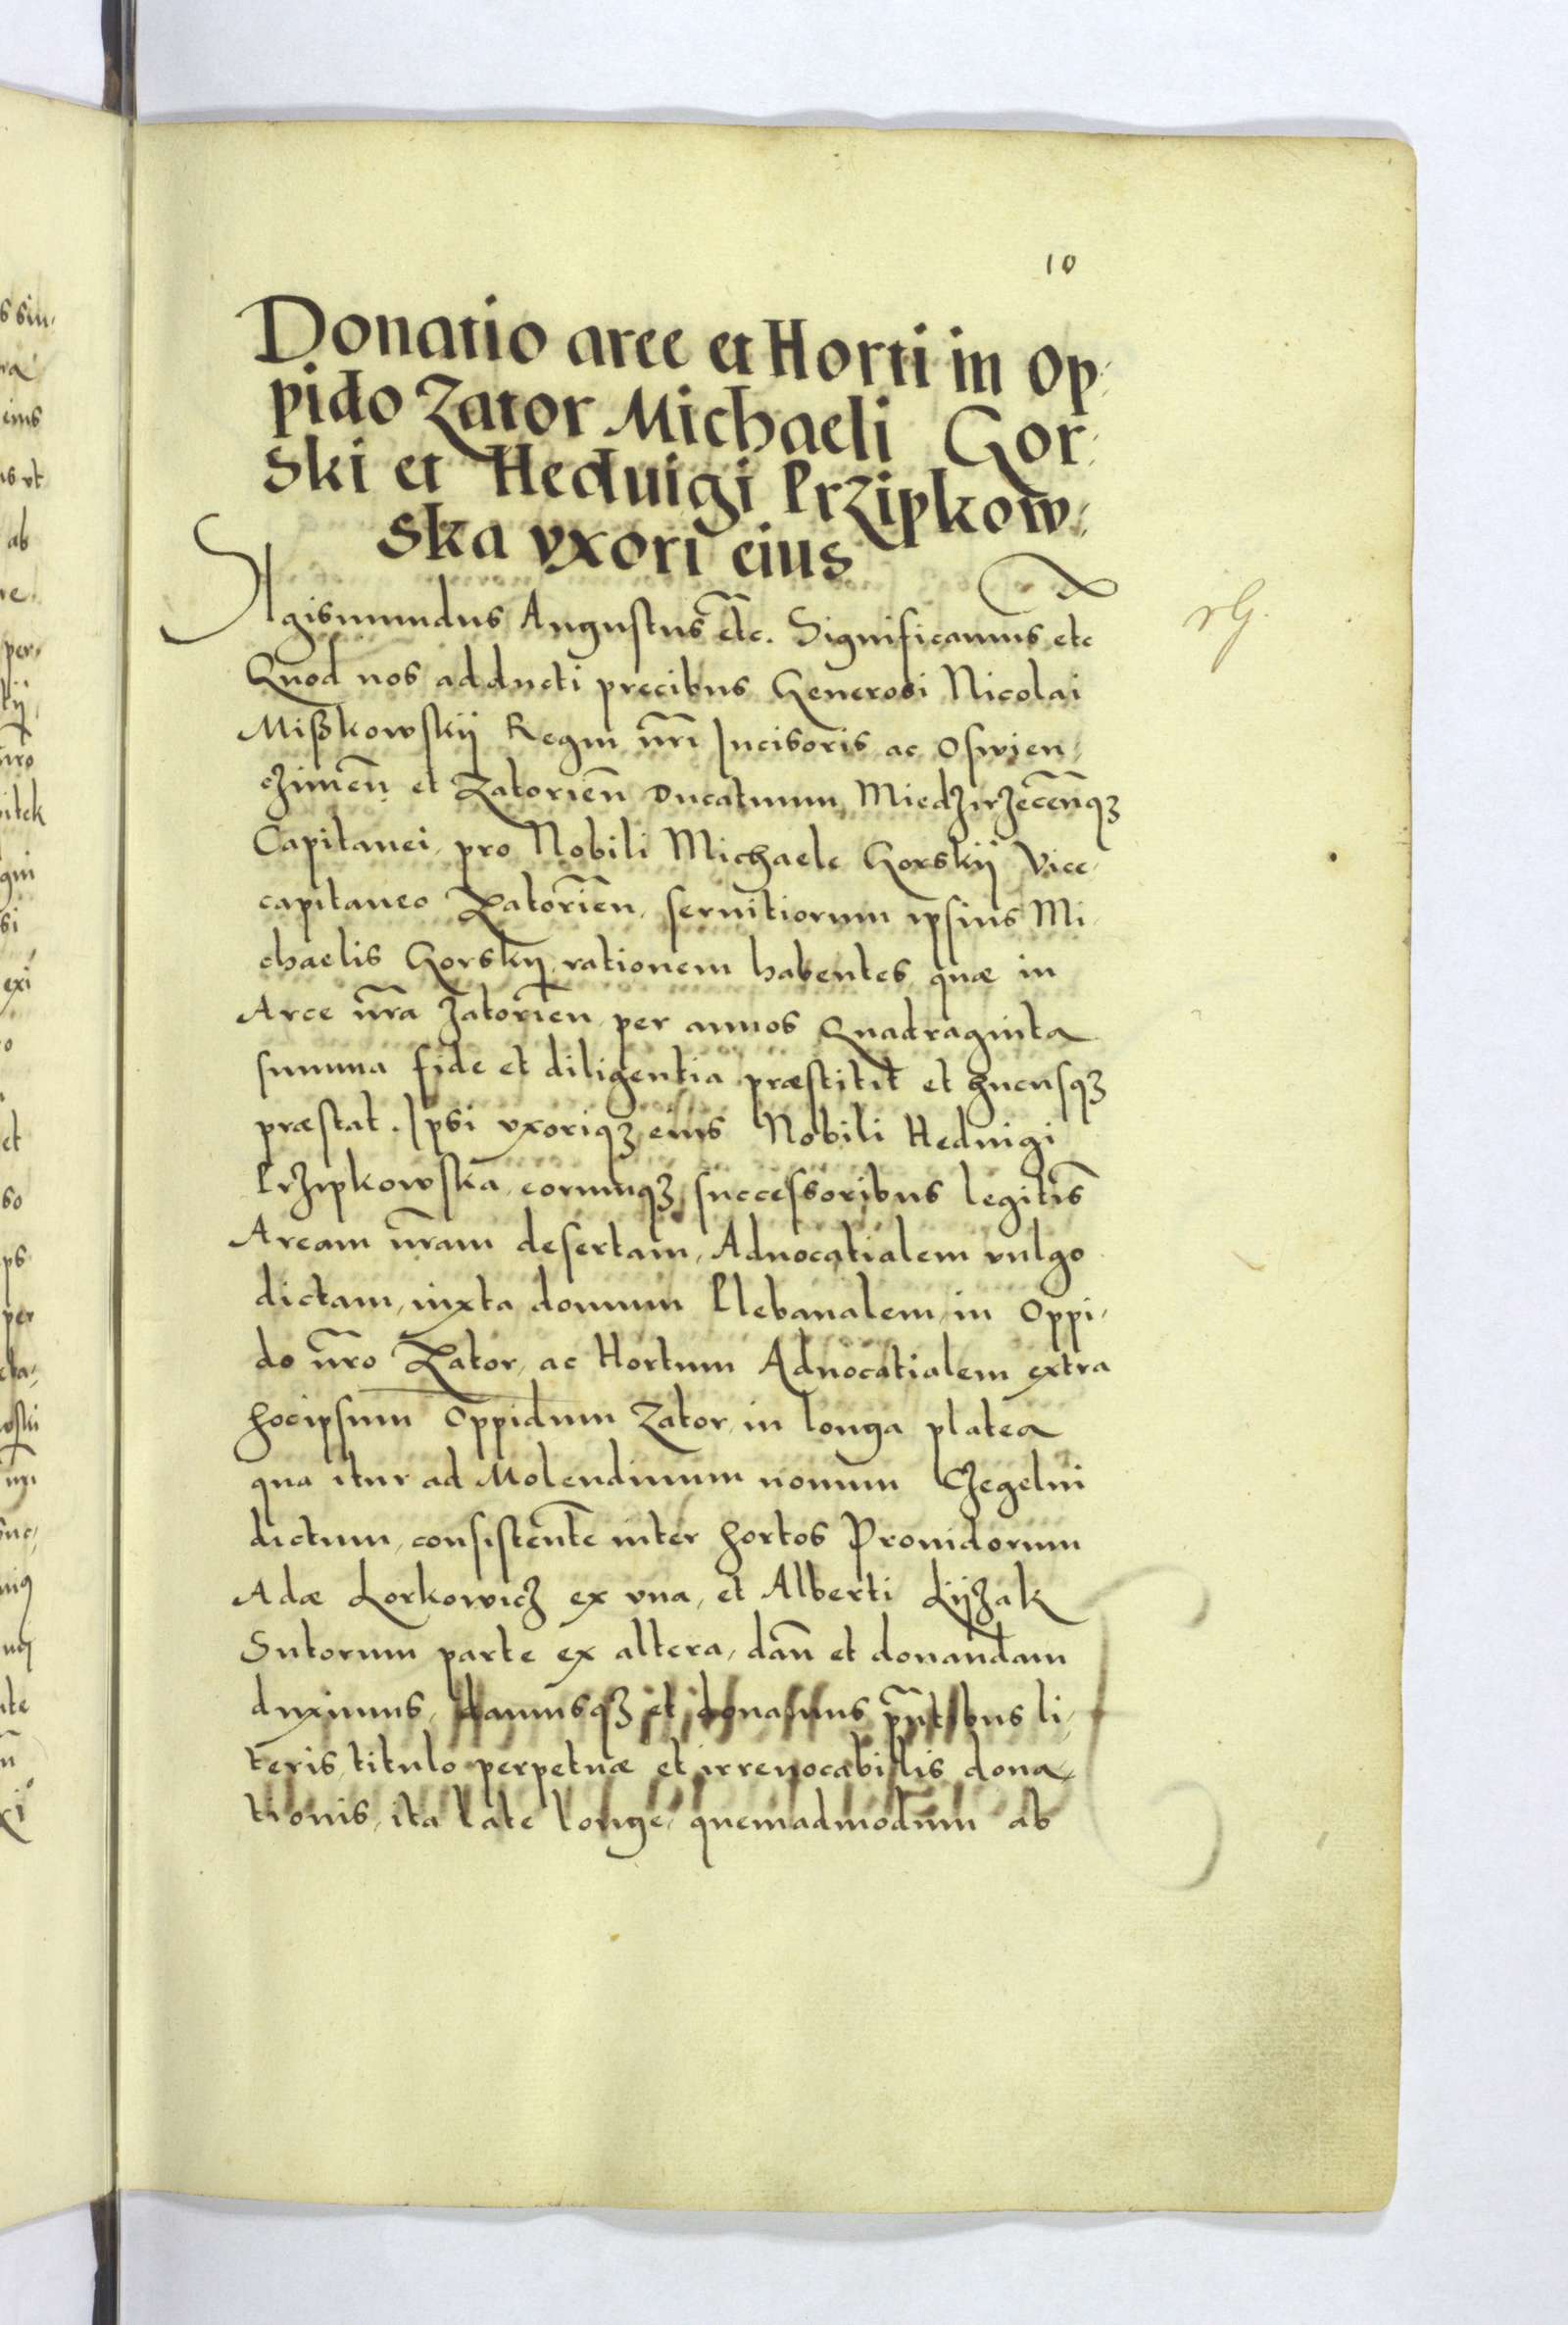 10
Donatio aree et Horti in Op:
pido Zator Michaeli Gor:
ski et Heduigi Przipkow:
ska vxori eius
SIgismundus Augustus etc. Significamus etc
Quod nos adducti precibus Generosi Nicolai
Mißkowskij Regni nr̄i Incisoris ac Oswien,
czimen̄ et Zatorien̄ Ducatuum Miedzirzecen̄qȝ
Capitanei, pro Nobili Michaele Gorskij Vice,
capitaneo Zatorien̄, seruitiorum ipsius Mi,
chaelis Gorskij rationem habentes, quæ in
Arce nr̄a Zatorien̄, per annos Quadraginta
summa fide et diligentia præstitit et hucusqȝ
præstat. Ipsi vxoriqȝ eius Nobili Heduigi
Przipkowska, eorumqȝ successoribus legitīs
Aream nr̄am desertam, Aduocatialem vulgo
dictam, iuxta domum Plebanalem, in Oppi,
do nr̄o Zator, ac Hortum Aduocatialem extra
hocipsum Oppidum Zator, in longa platea
qua itur ad Molendinum nouum Czegelni
dictum, consistente inter hortos Prouidorum
Adæ Lorkowicz ex vna, et Alberti Lijzak
Sutorum parte ex altera, dan̄ et donandam
duximus, damusqȝ et donamus pn̄tibus li,
teris, titulo perpetuæ et irreuocabilis dona,
tionis, ita late longe, quemadmodum ab